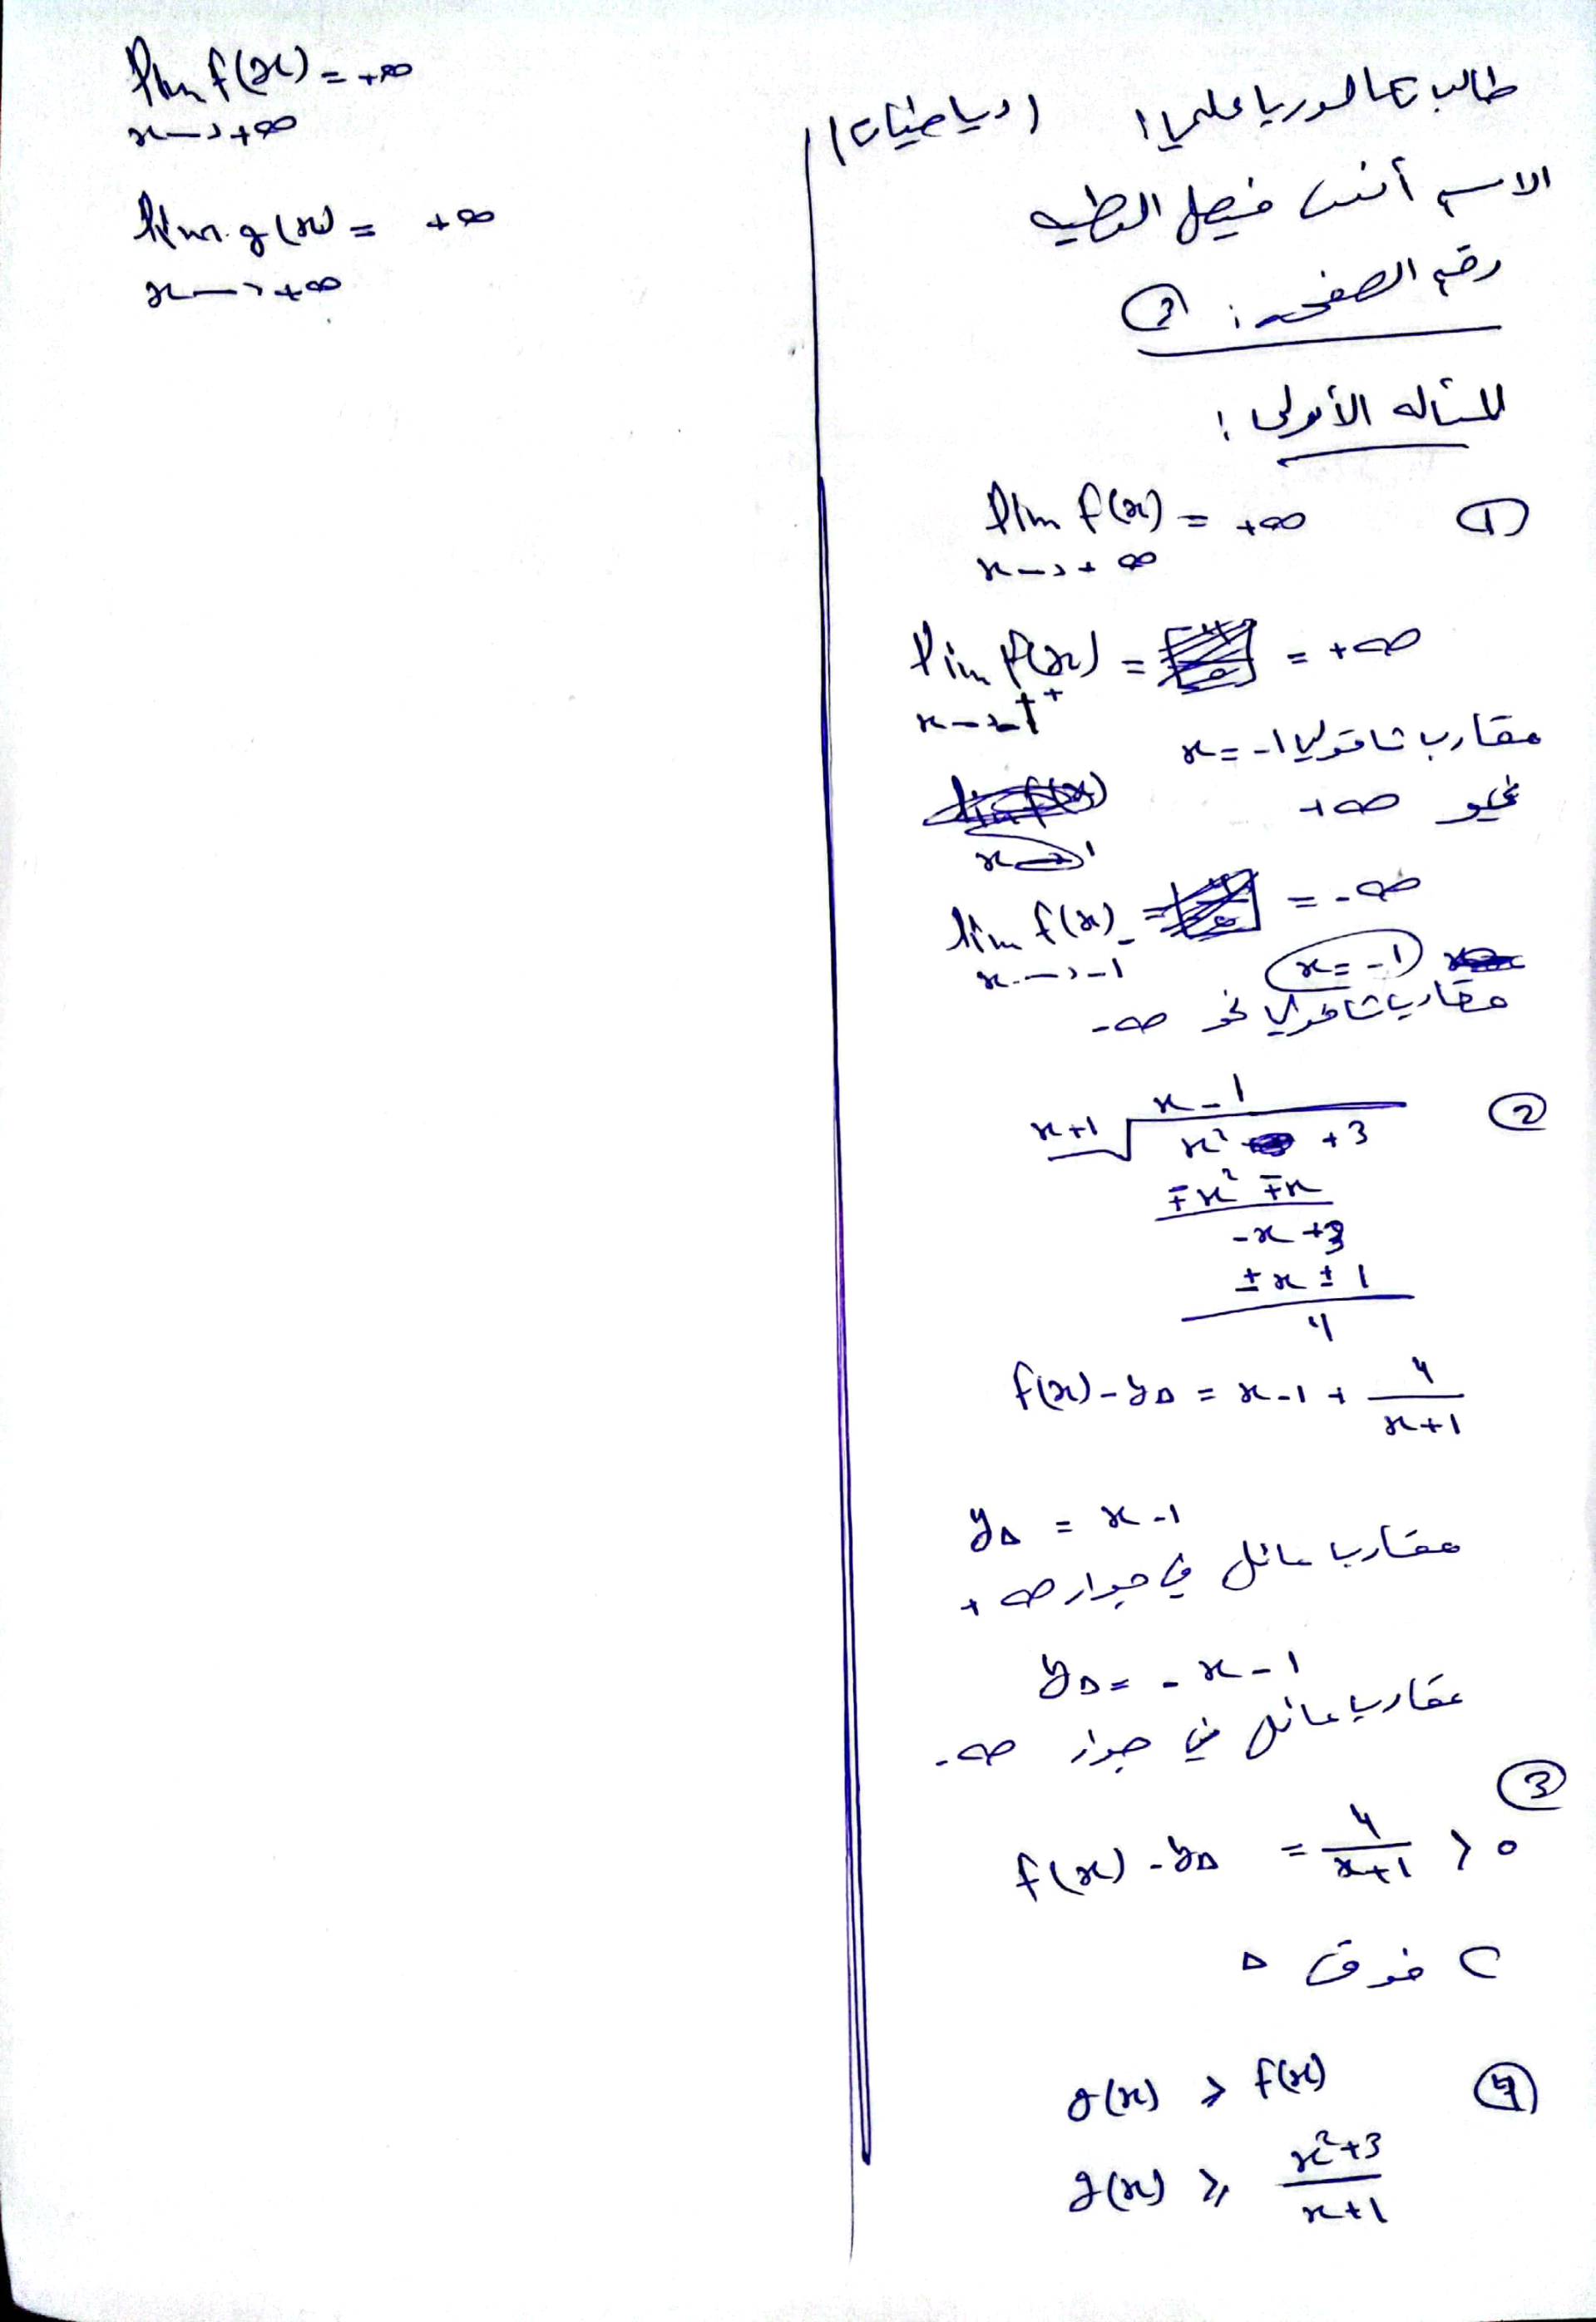 طالب بكالوريا علمي: (رياضيات)
الاسم أنس فيصل
رقم الصفحة: 3
المسألة الأولى:
① lim f(x) = +∞
x→+∞
lim f(x) = = +∞
x→-1⁺
مقارب شاقولي x = -1
نحو +∞
lim f(x) = = -∞
x→-1⁻
x = -1
مقارب شاقولي نحو -∞
② x - 1
x+1 x² + 3
∓x² ∓x
-x + 3
±x ± 1
4
f(x) - y∆ = x - 1 + 4/(x+1)
y∆ = x - 1
مقارب مائل في جوار +∞
y∆ = -x - 1
مقارب مائل في جوار -∞
③
f(x) - y∆ = 4/(x+1) > 0
C فوق ∆
④ g(x) ≥ f(x)
g(x) ≥ (x²+3)/(x+1)
lim f(x) = +∞
x→+∞
lim g(x) = +∞
x→+∞